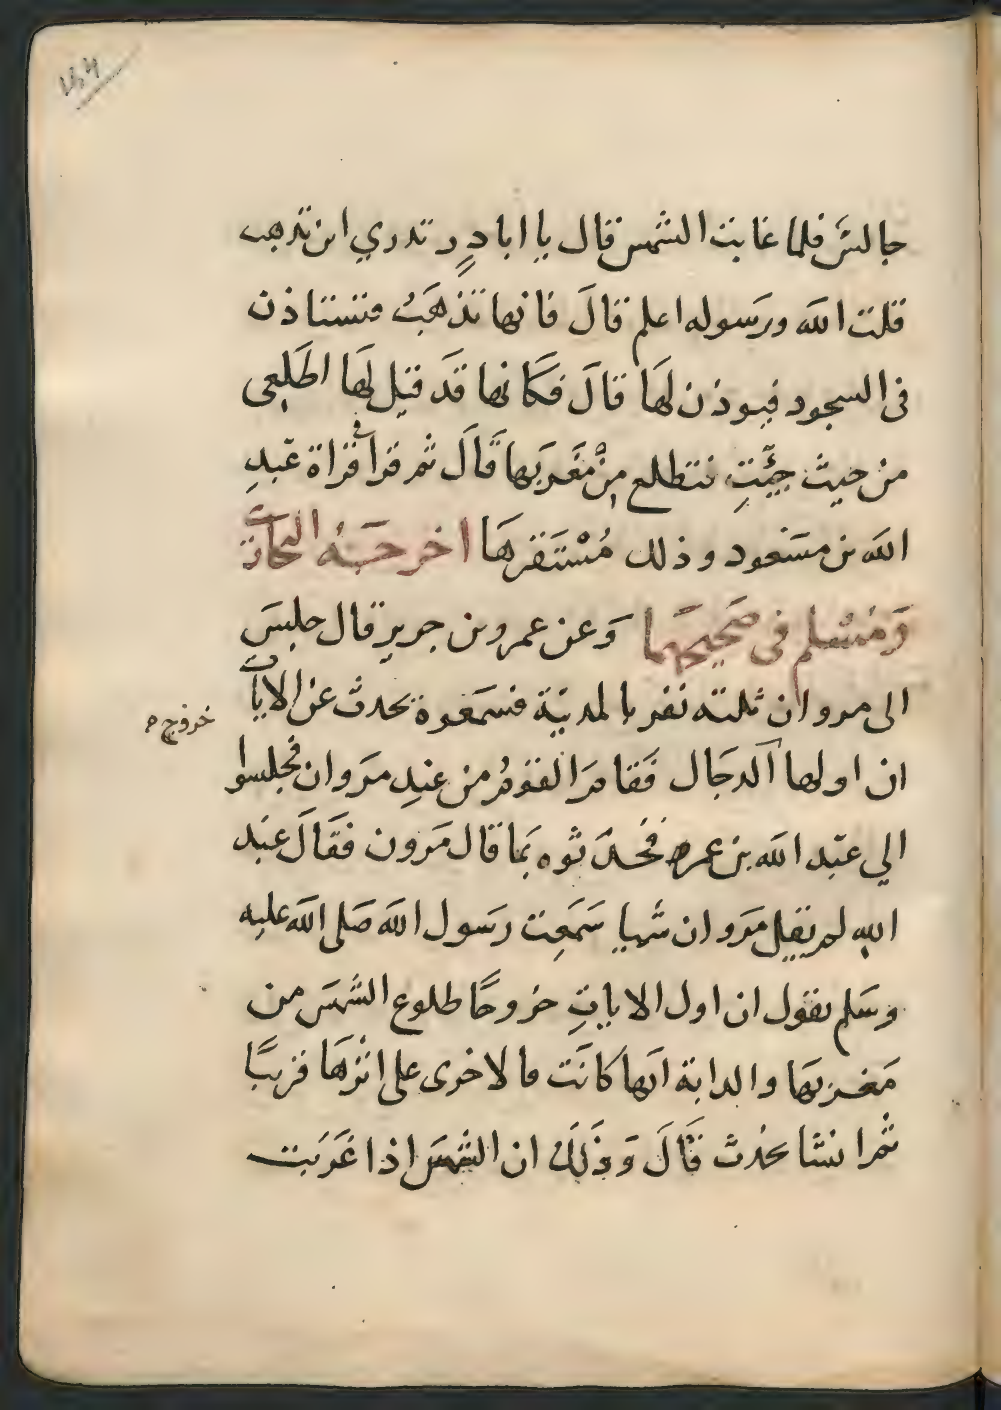 جالس فلما غابت الشمس قال يا اباذرٍ تدري اين تذهب
قلت الله ورسوله اعلم قالَ فانها تذهَبُ فتستاذن
فى السجود فيوذن لهَا قالَ فكَانها قدَ قيل لهَا اطلعِى
من حيث جِيَّتِ فتطلع مِنْ مغَربَها قَالَ ثم قرا فى قراة عبدِ
الله بن مسَعود وذلك مُسْتَقرهَا اخرجَهُ البخارى
وَمُسْلم فى صَحيحَيهما وَعن عمرو بن جرير قال جلسَ
الى مروان ثلثة نفر بالمدينة فسمَعوه يحدث عن الايات
خروج
ان اولها الدجَال فَقامَ القَومُ من عندِ مرَوان فجلسوا
الي عبَد الله بن عمر فَحدَّثوه بمَا قال مَرون فقَالَ عبَد
اللهِ لم يقل مَروان شيا سَمَعِت رسَول الله صَلى الله عليه
وسَلم يقول ان اول الاياتِ خروجًا طلوع الشمسَ من
مَغربهَا والدابة ايهَا كانَت ما لاخرى على اثْرهَا قريبًا
ثم انشا يحُدث قَالَ وَذَلَكَ ان الشمسَ اذا غَرَبَت